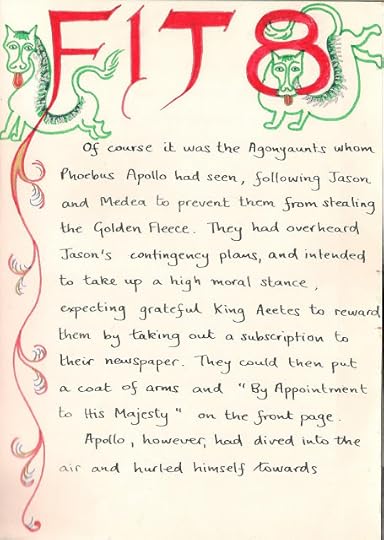 FIT 8
Of course it was the Agonyaunts whom
Phoebus Apollo had seen, following Jason
and Medea to prevent them from stealing
the Golden Fleece. They had overheard
Jason's contingency plans, and intended
to take up a high moral stance,
expecting grateful King Aeetes to reward
them by taking out a subscription to
their newspaper. They could then put
a coat of arms and "By Appointment
to His Majesty" on the front page.
Apollo, however, had dived into the
air and hurled himself towards